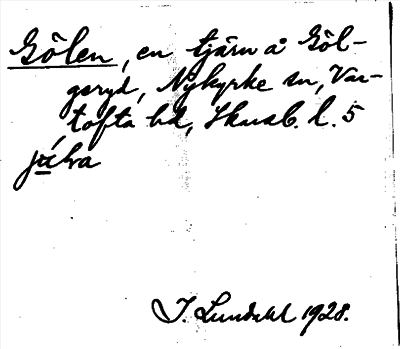 Gölen, en tjärn å Göl-
geryd, Nykyrke sn, Var-
tofta hd, Skarab. l. 5
I. Lundahl 1928.